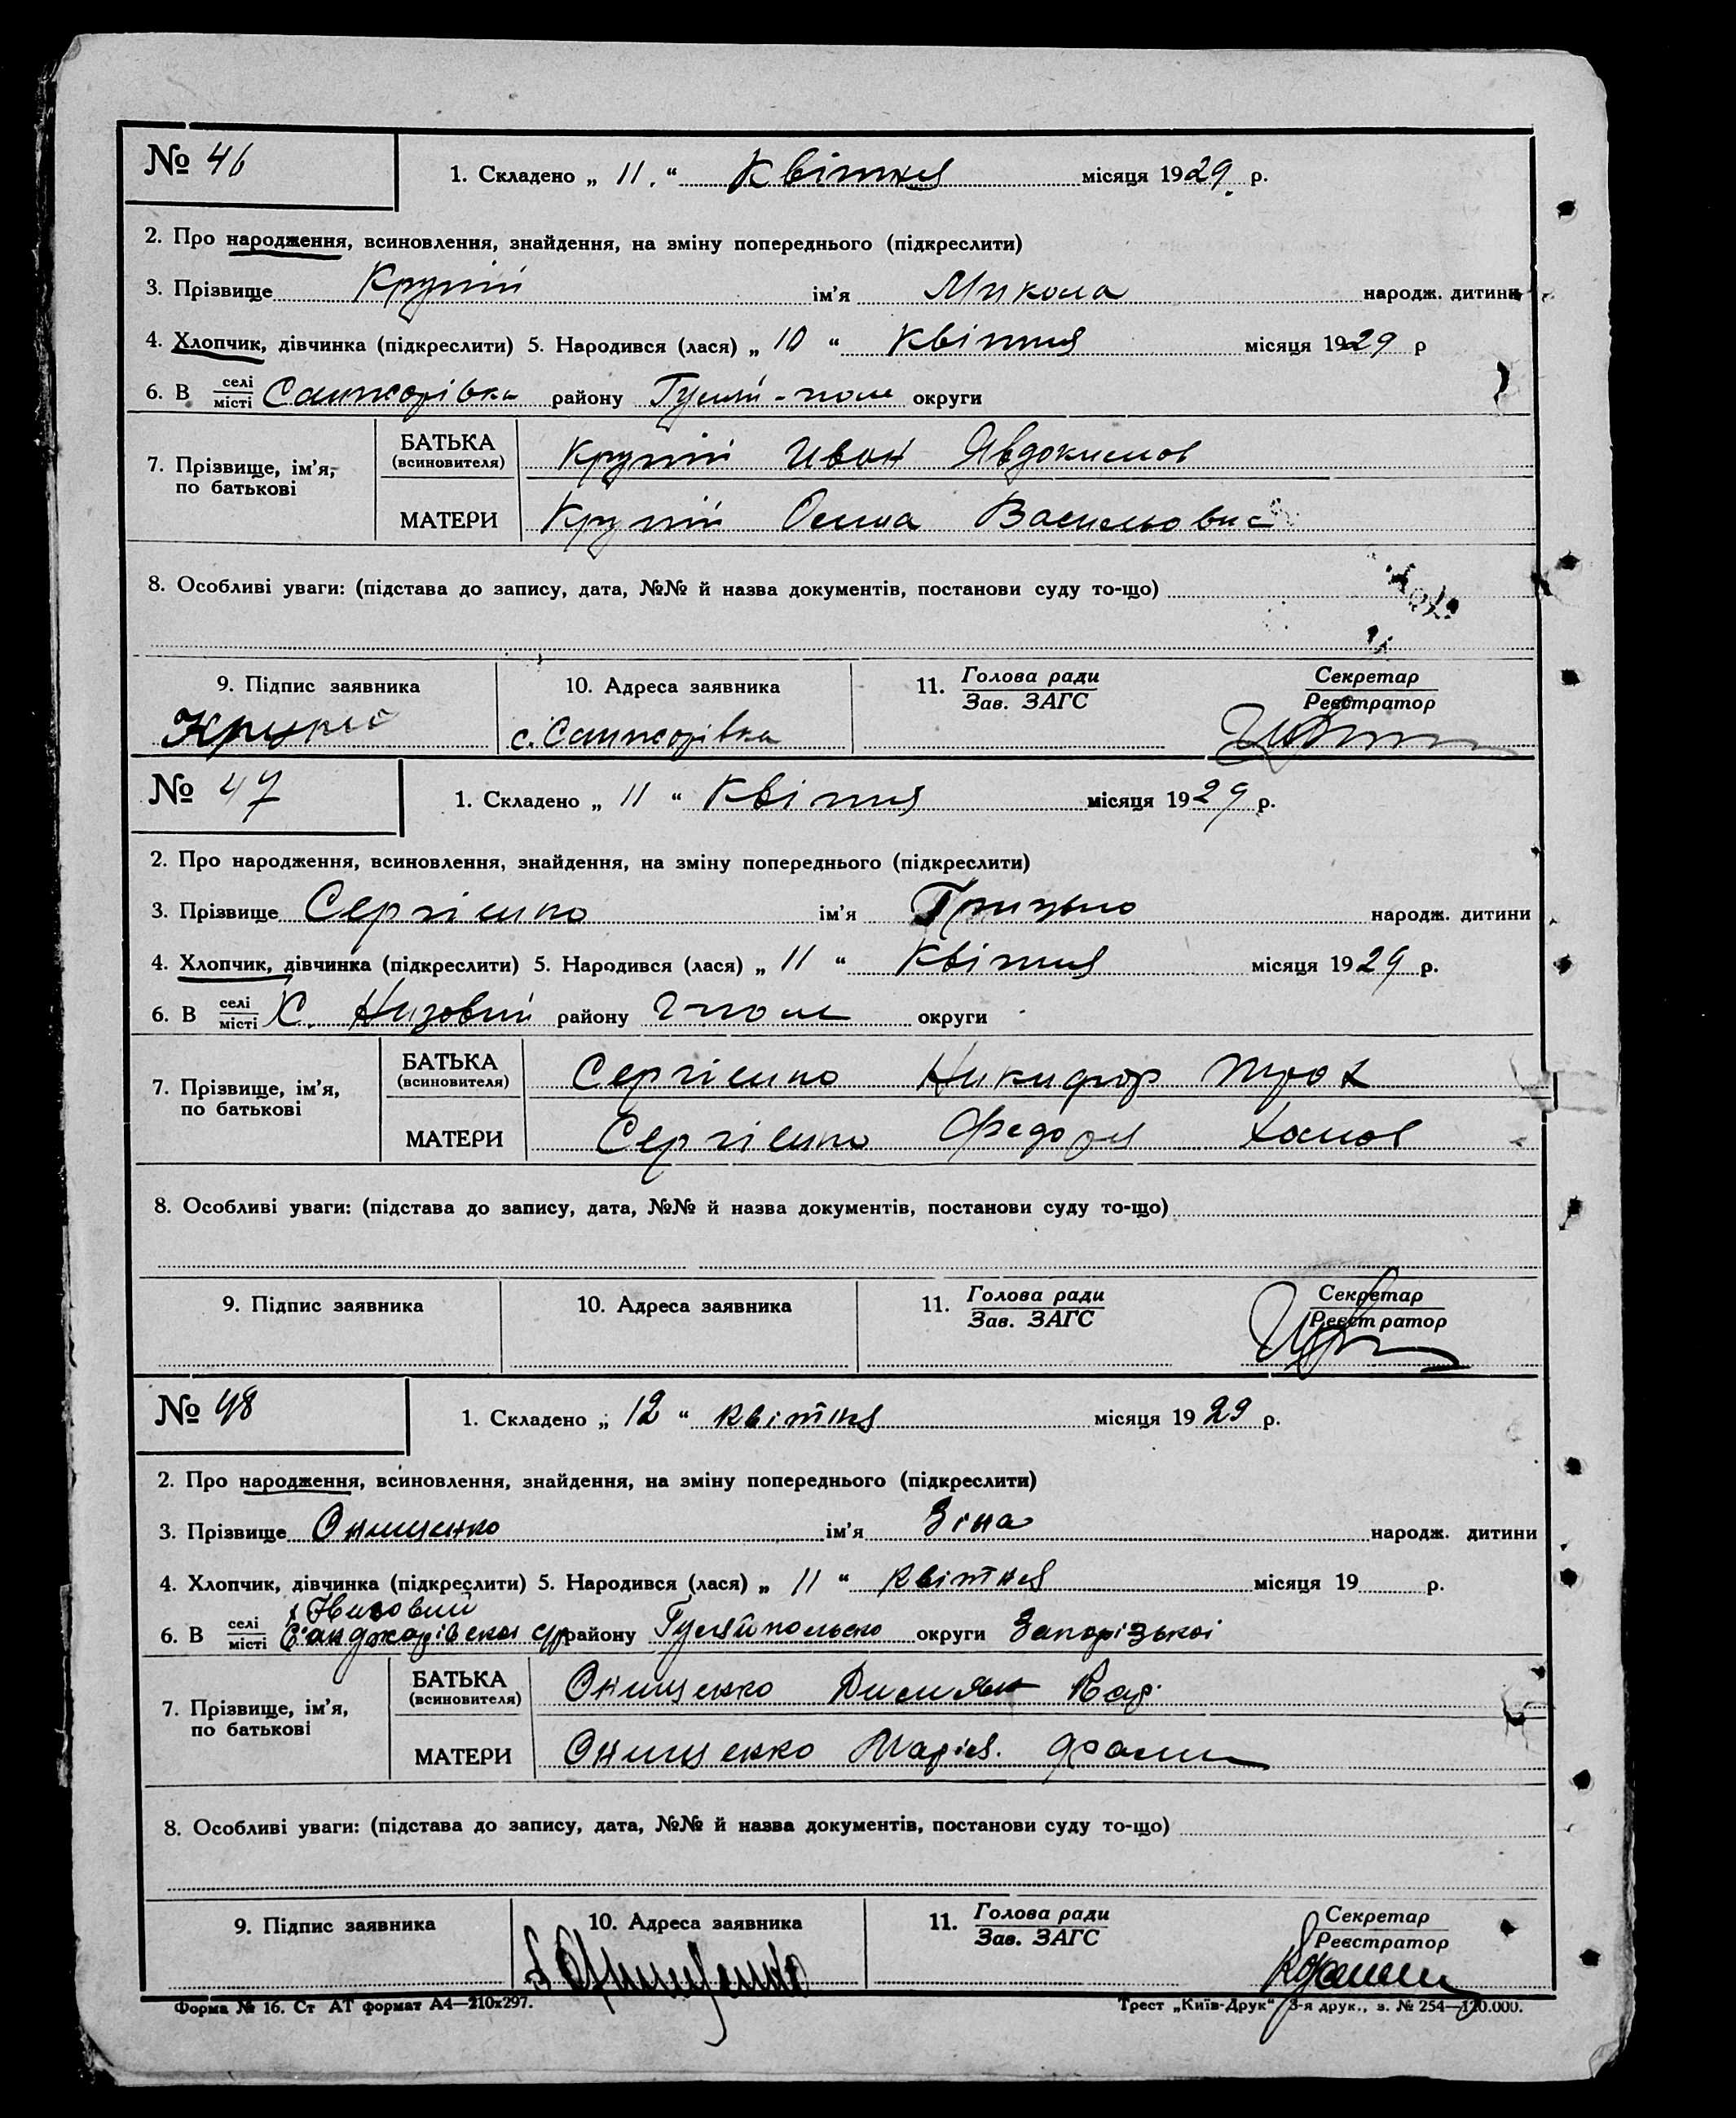 № 46
1. Складено „ 11. “ Квітня місяця 1929. р.
2. Про народження, всиновлення, знайдення, на зміну попереднього (підкреслити)
3. Прізвище Крупій ім’я Микола народж. дитини
4. Хлопчик, дівчинка (підкреслити) 5. Народився (лася) „ 10 “ Квітня місяця 1929 р
6. В селі/місті Санжорівка району Гуляй-поле округи
7. Прізвище, ім’я, по батькові
БАТЬКА (всиновителя) Крупій Иван Явдокимов
МАТЕРИ Крупій Василь
8. Особливі уваги: (підстава до запису, дата, №№ й назва документів, постанови суду то-що)
9. Підпис заявника 10. Адреса заявника 11. Голова ради/Зав. ЗАГС Секретар/Реєстратор
Крупій с. Санжорівка
№ 47
1. Складено „ 11 “ Квітня місяця 1929 р.
2. Про народження, всиновлення, знайдення, на зміну попереднього (підкреслити)
3. Прізвище Сергієнко ім’я Грицько народж. дитини
4. Хлопчик, дівчинка (підкреслити) 5. Народився (лася) „ 11 “ Квітня місяця 1929 р.
6. В селі/місті Х. Низовий району Г-поле округи
7. Прізвище, ім’я, по батькові
БАТЬКА (всиновителя) Сергієнко Никифор
МАТЕРИ Сергієнко Федора
8. Особливі уваги: (підстава до запису, дата, №№ й назва документів, постанови суду то-що)
9. Підпис заявника 10. Адреса заявника 11. Голова ради/Зав. ЗАГС Секретар/Реєстратор
№ 48
1. Складено „ 12 “ квітня місяця 1929 р.
2. Про народження, всиновлення, знайдення, на зміну попереднього (підкреслити)
3. Прізвище Онищенко ім’я Зіна народж. дитини
4. Хлопчик, дівчинка (підкреслити) 5. Народився (лася) „ 11 “ квітня місяця 19 р.
х Низовий
6. В селі/місті Санджарівської с/р району Гуляйпольско округи Запорізькоі
7. Прізвище, ім’я, по батькові
БАТЬКА (всиновителя) Онищенко Димян Кар.
МАТЕРИ Онищенко Марія.
8. Особливі уваги: (підстава до запису, дата, №№ й назва документів, постанови суду то-що)
9. Підпис заявника 10. Адреса заявника 11. Голова ради/Зав. ЗАГС Секретар/Реєстратор
Онищенко
Форма № 16. Ст АТ формат А4—210х297. Трест „Київ-Друк“ 3-я друк., з. № 254—120.000.